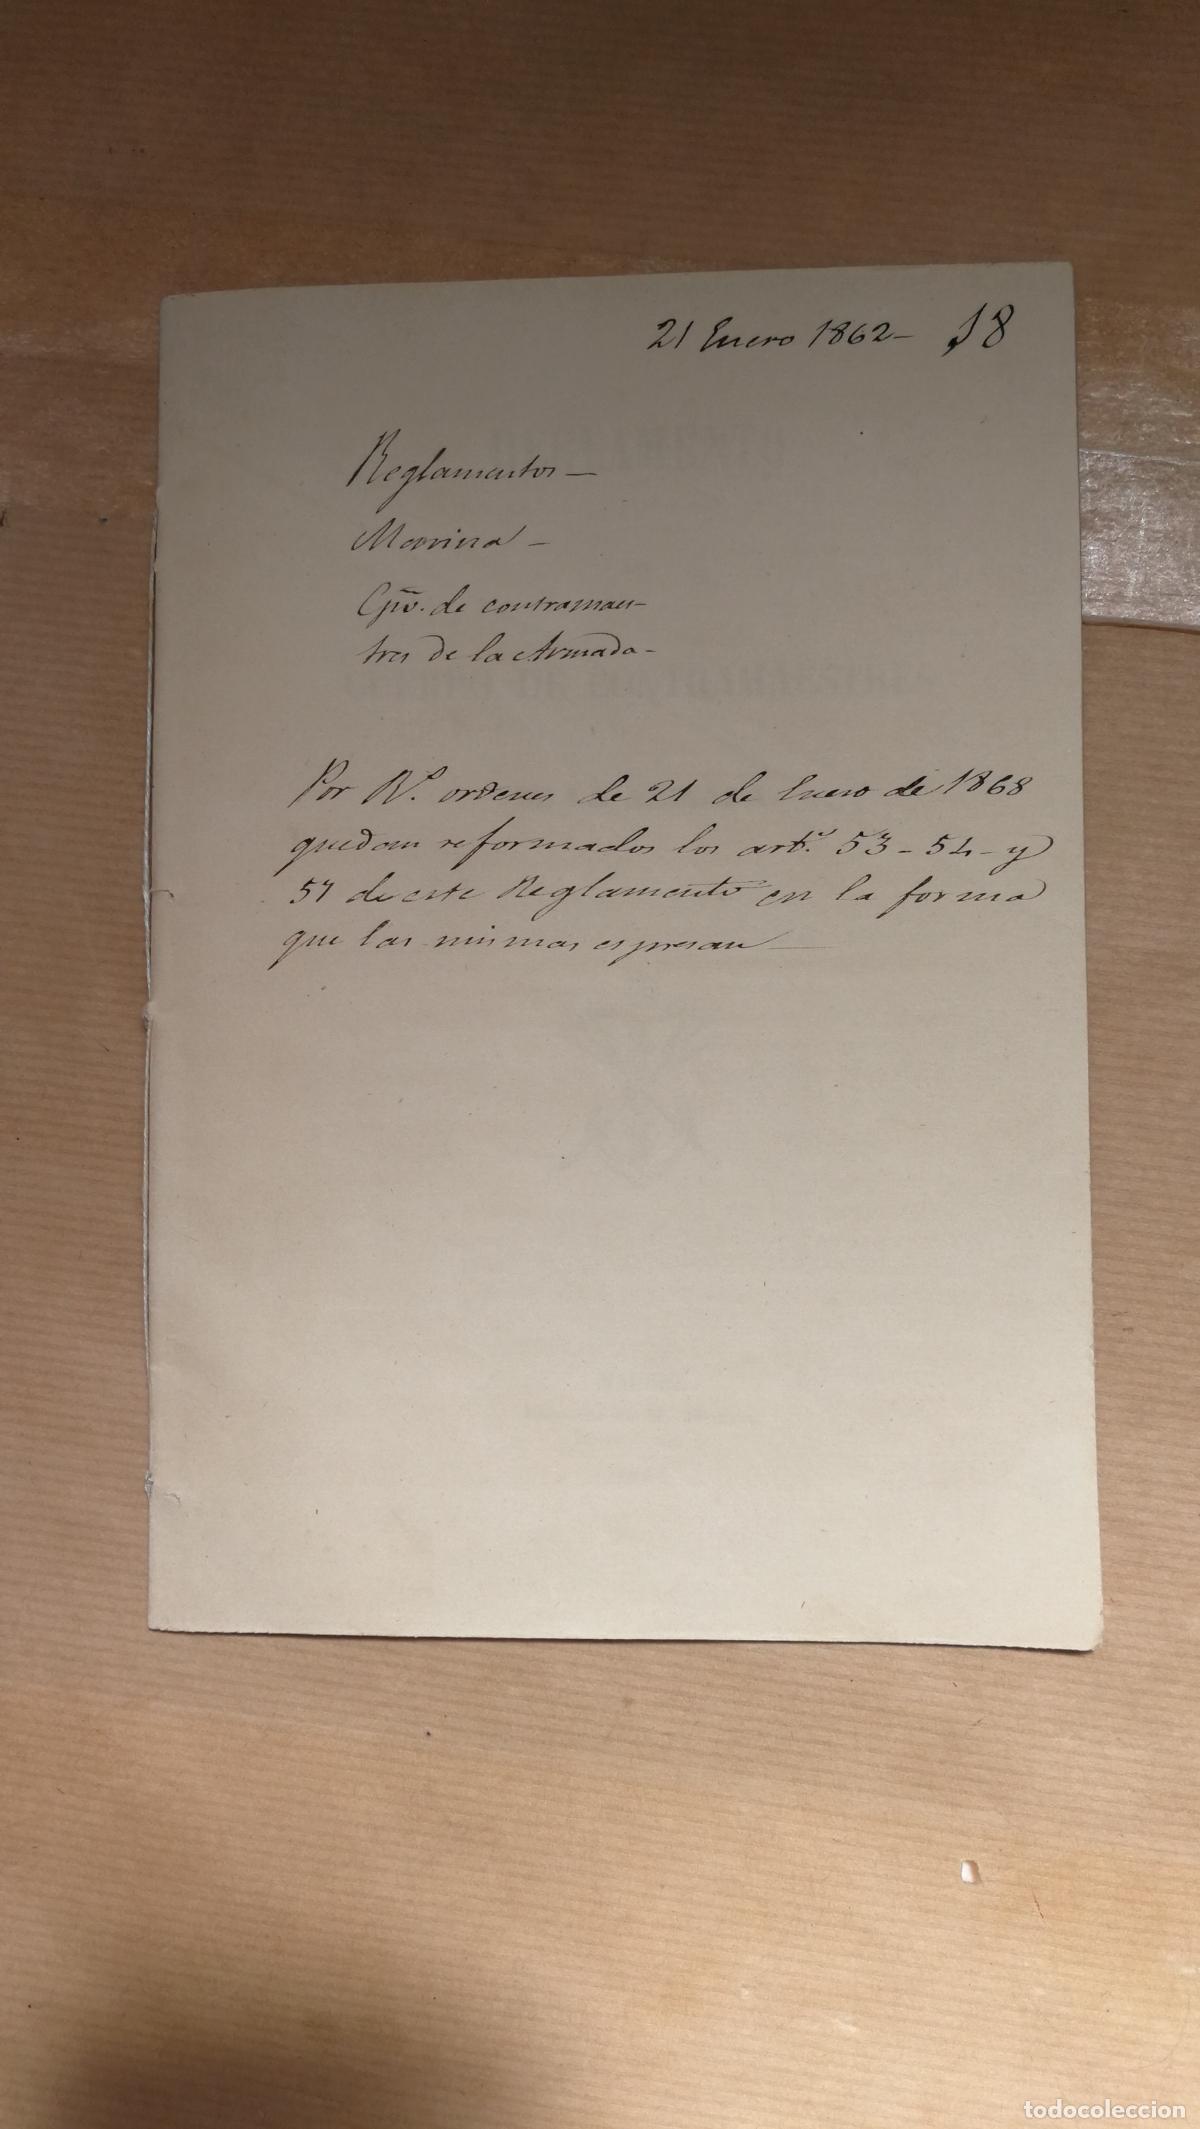 21 Enero 1862 - 18
Reglamentos -
Marina -
Cpo. de contramaes-
tres de la Armada -
Por Rs. ordenes de 21 de Enero de 1868
quedan reformados los arts. 53 - 54 - y
57 de este Reglamento en la forma
que las mismas espresan
todocoleccion